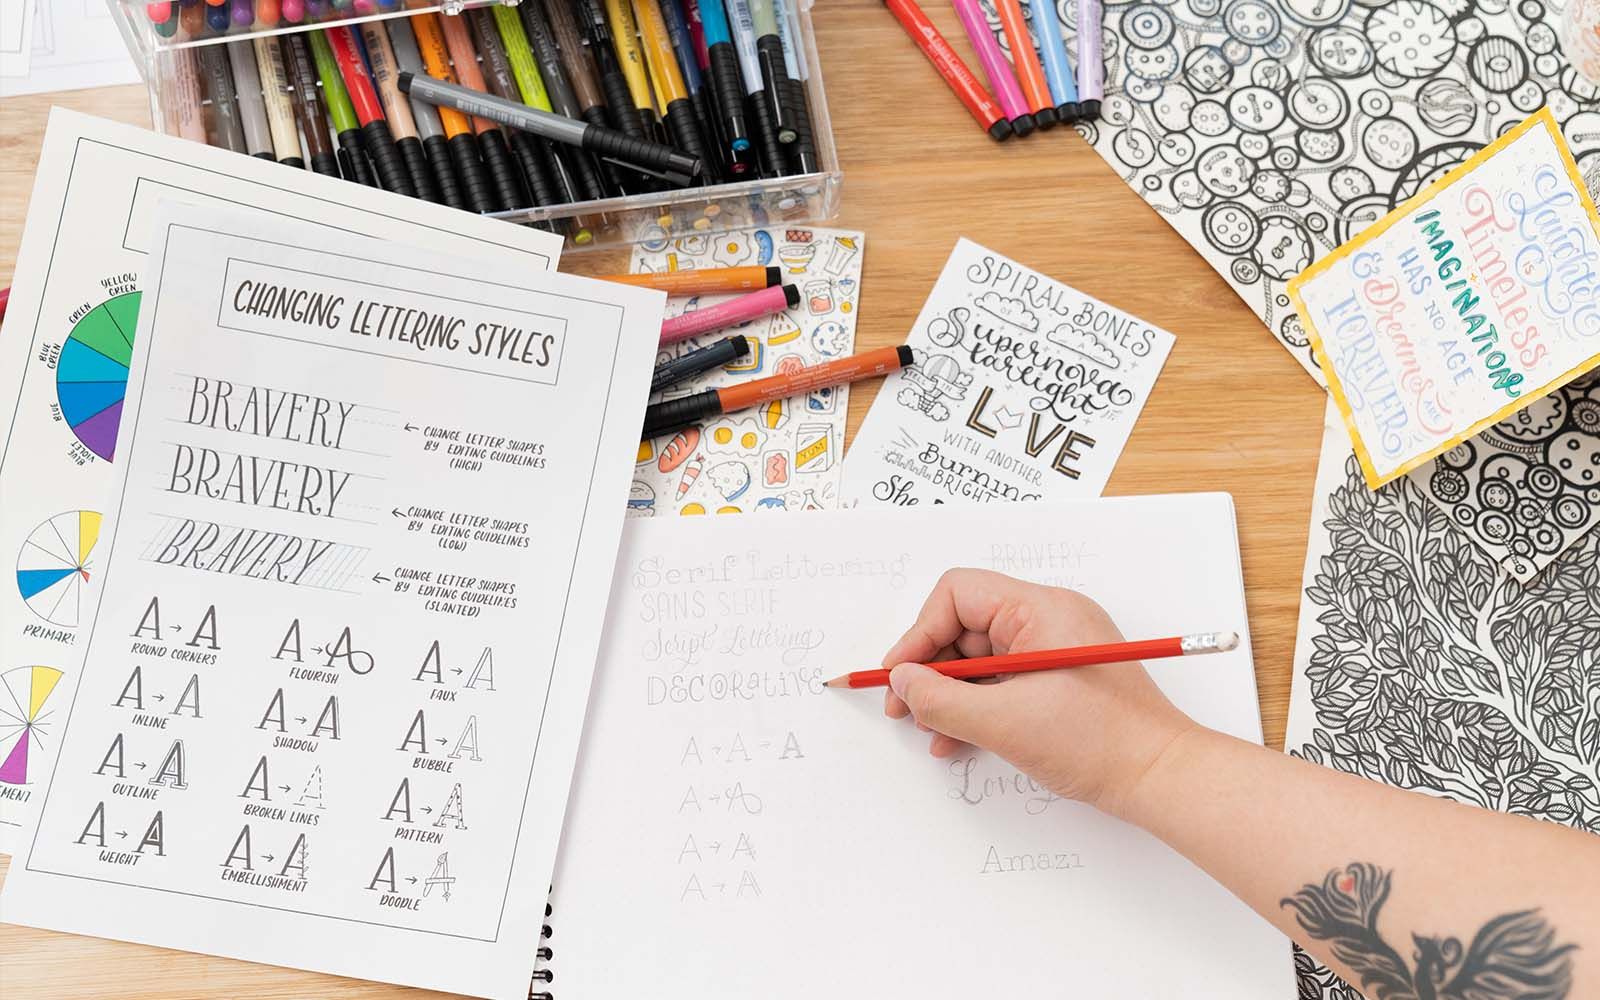 CHANGING LETTERING STYLES
BRAVERY
CHANGE LETTER SHAPES
BY EDITING GUIDELINES
(HIGH)
BRAVERY
CHANGE LETTER SHAPES
BY EDITING GUIDELINES
(LOW)
BRAVERY
CHANGE LETTER SHAPES
BY EDITING GUIDELINES
(SLANTED)
A → A
ROUND CORNERS
A → A
FLOURISH
A → A
FAUX
A → A
INLINE
A → A
SHADOW
A → A
BUBBLE
A → A
OUTLINE
A → A
BROKEN LINES
A → A
PATTERN
A → A
WEIGHT
A → A
EMBELLISHMENT
A → A
DOODLE
YELLOW
GREEN
GREEN
BLUE
GREEN
BLUE
BLUE
VIOLET
SPIRAL BONES
OF
Supernova
Starlight
FELL IN
LOVE
WITH ANOTHER
Burning
BRIGHT
She
Laughter
is
Timeless
IMAGINATION
HAS NO AGE
& Dreams
ARE
FOREVER
Serif Lettering
SANS SERIF
Script Lettering
DECORATIVE
A → A → A
A → A
A → A
A → A
BRAVERY
Lovely
Amazi